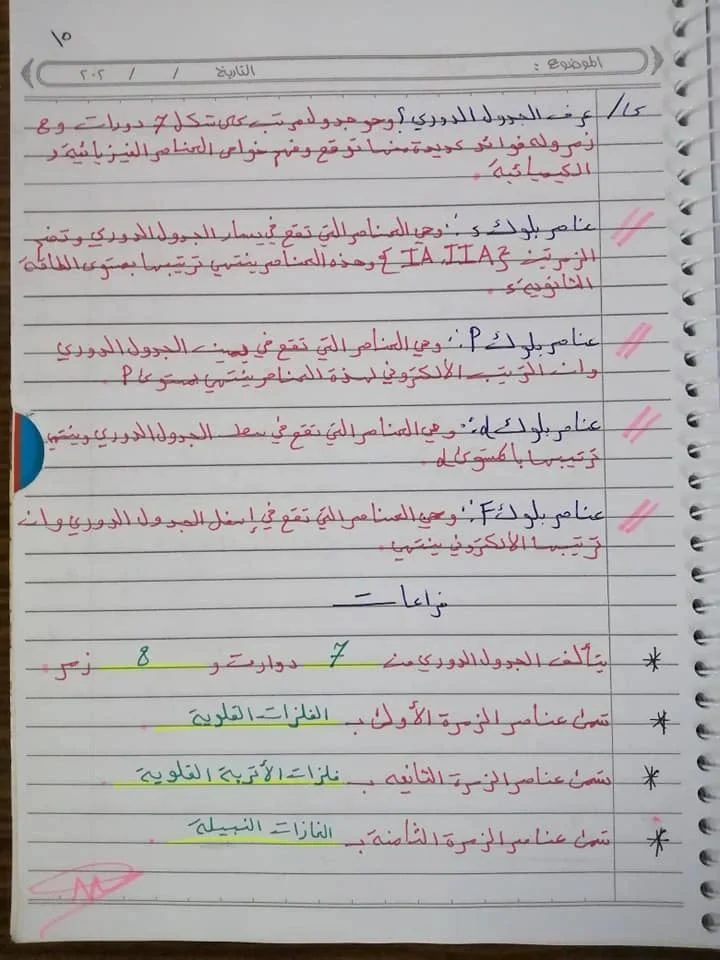 ١٥
الموضوع :
التاريخ / / ٢٠٢
س١/ عرف الجدول الدوري؟ وهو جدول مرتب على شكل 7 دورات و 8
زمر وله فوائد عديدة منها توقع وفهم خواص العناصر الفيزيائية و
الكيميائية .
// عناصر بلوك s :: وهي العناصر التي تقع في يسار الجدول الدوري وتضم
الزمرتين { IA , IIA } وهذه العناصر ينتهي ترتيبها بمستوى الطاقة
الثانوي s .
// عناصر بلوك P :: وهي العناصر التي تقع في يمين الجدول الدوري
وان الترتيب الألكتروني لهذه العناصر ينتهي بمستوى P .
// عناصر بلوك d :: وهي العناصر التي تقع في وسط الجدول الدوري وينتهي
ترتيبها بالمستوى d .
// عناصر بلوك F :: وهي العناصر التي تقع في إسفل الجدول الدوري وان
ترتيبها الألكتروني ينتهي .
فراغات
* يتألف الجدول الدوري من 7 دوارت و 8 زمر .
* تسمى عناصر الزمرة الأولى بـ الفلزات القلوية .
* تسمى عناصر الزمرة الثانيه بـ فلزات الأتربة القلوية .
* تسمى عناصر الزمرة الثامنة بـ الغازات النبيلة .